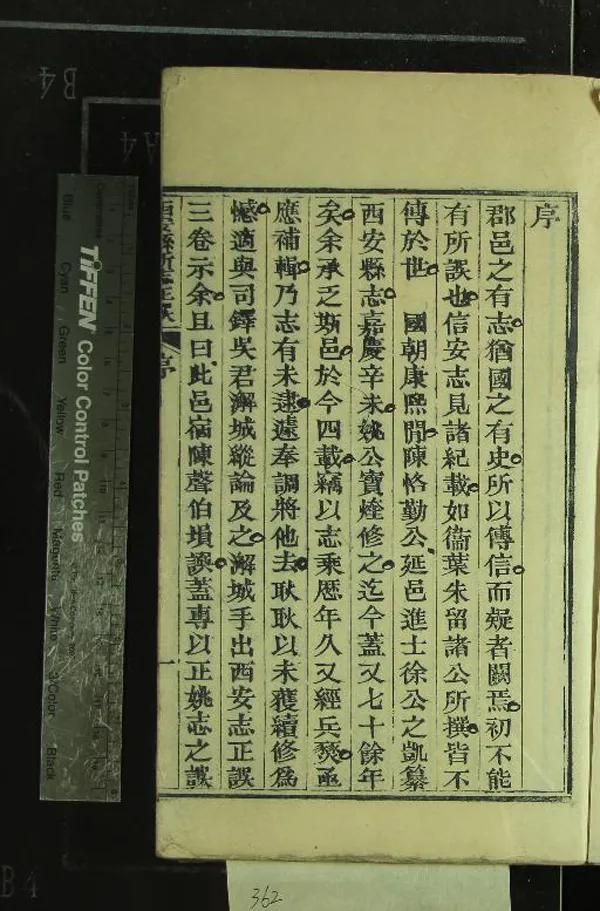 序
郡邑之有志猶國之有史所以傳信而疑者闕焉初不能
有所誤也信安志見諸紀載如衞葉朱留諸公所撰皆不
傳於世　國朝康熙閒陳恪勤公延邑進士徐公之凱纂
西安縣志嘉慶辛未姚公寶煃修之迄今蓋又七十餘年
矣余承乏斯邑於今四載竊以志乘歷年久又經兵燹亟
應補輯乃志有未逮遽奉調將他去耿耿以未獲續修為
憾適與司鐸吳君澥城縱論及之澥城手出西安志正誤
三卷示余且曰此邑宿陳聲伯塤譔蓋專以正姚志之誤
序
一
TIFFEN Color Control Patches
Blue
Cyan
Green
Yellow
Red
Magenta
White
3/Color
Black
B4
A4
B4
362